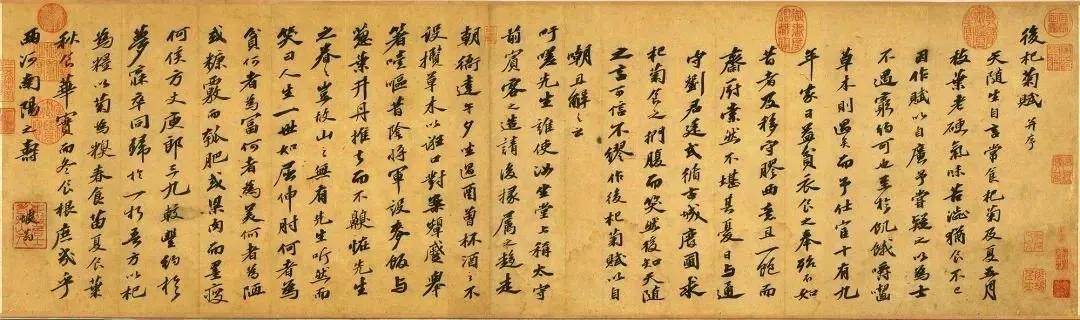 後杞菊賦 并序
天隨生自言常食杞菊及夏五月
枝葉老硬氣味苦澀猶食不已
因作賦以自廣予嘗疑之以為士
不遇窮約可也至於飢餓嚼齧
草木則過矣而予仕宦十有九
年家日益貧衣食之奉殆不如
昔者及移守膠西意且一飽而
齋厨索然不堪其憂日與通
守劉君廷式循古城廢圃求
杞菊食之捫腹而笑然後知天隨
之言可信不繆作後杞菊賦以自
嘲且解之云
吁嗟先生誰使汝坐堂上稱太守
前賓客之造請後掾屬之趨走
朝衙達午夕坐過酉曾杯酒之不
設攬草木以誑口對案顰蹙舉
箸噎嘔昔陰將軍設麥飯與
葱葉井丹推去而不齅怪先生
之眷眷豈故山之無有先生听然而
笑曰人生一世如屈伸肘何者為
貧何者為富何者為美何者為陋
或糠覈而瓠肥或粱肉而墨瘦
何侯方丈庾郎三九較豐約於
夢寐卒同歸於一朽吾方以杞
為糧以菊為糗春食苗夏食葉
秋食華實而冬食根庶幾乎
西河南陽之壽
坡翁